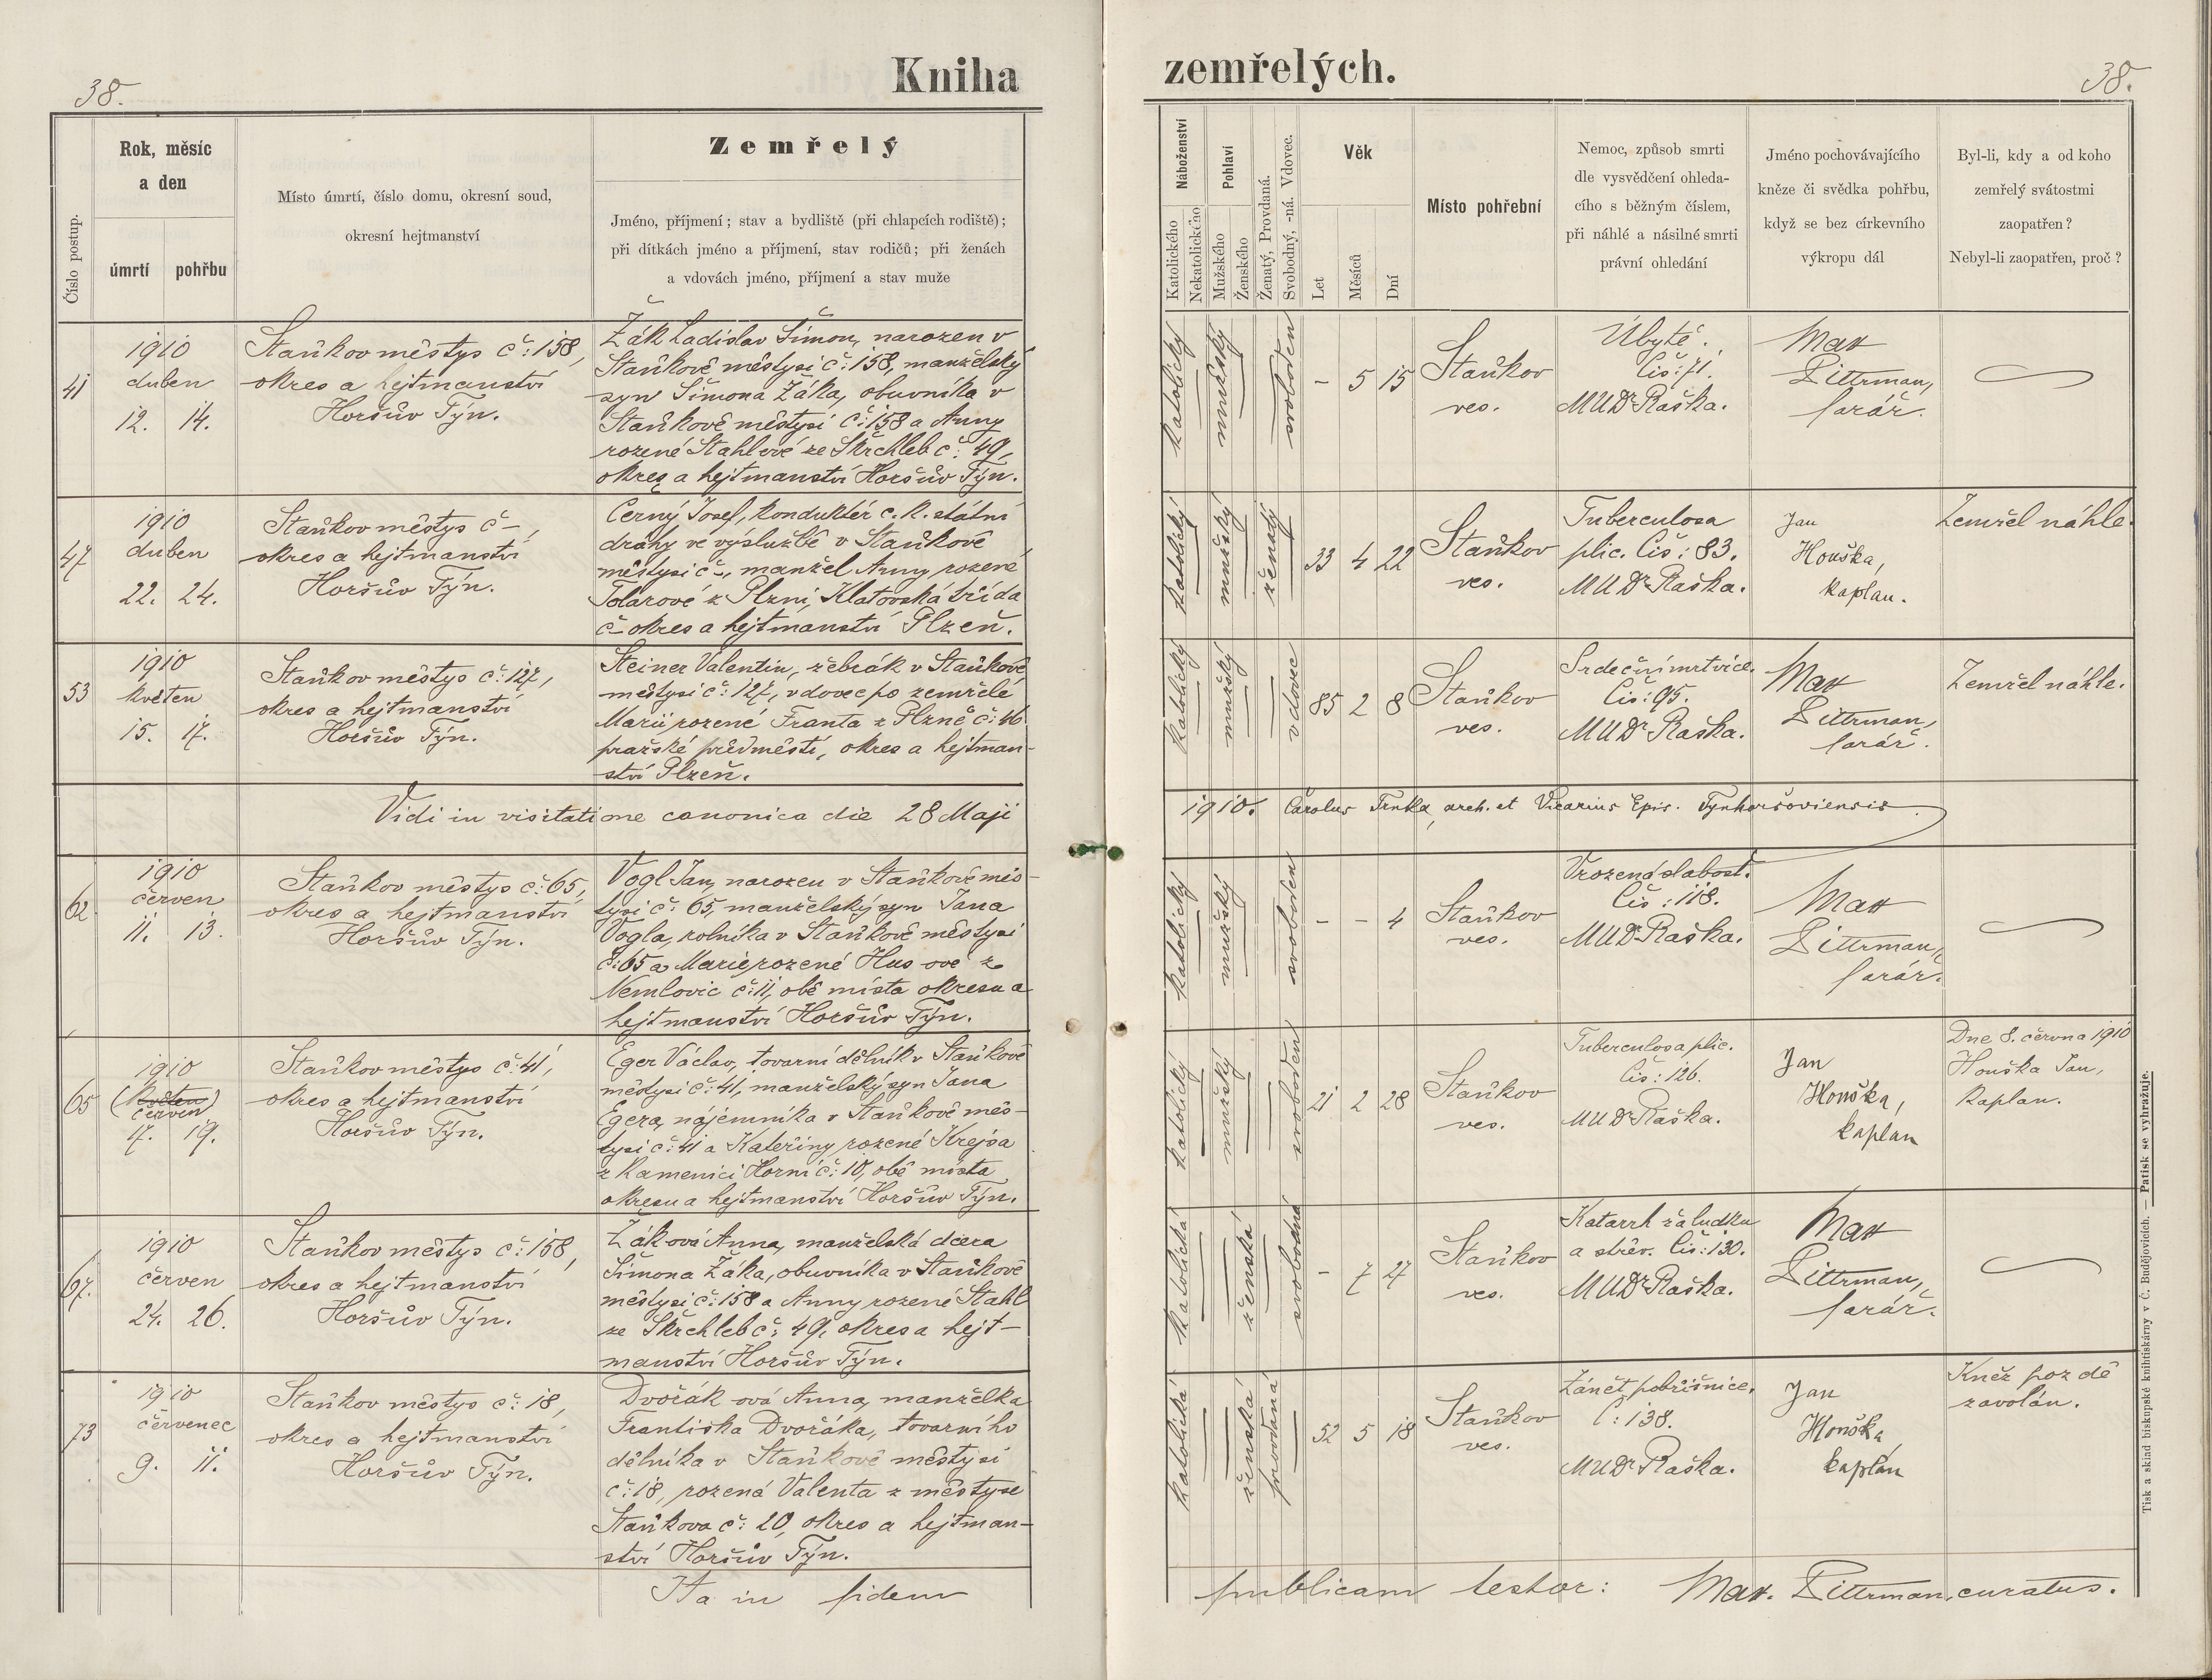 38.
Kniha
zemřelých.
38.
Číslo postup.
Rok, měsíc
a den
úmrtí
pohřbu
Místo úmrtí, číslo domu, okresní soud,
okresní hejtmanství
Zemřelý
Jméno, příjmení; stav a bydliště (při chlapcích rodiště);
při dítkách jméno a příjmení, stav rodičů; při ženách
a vdovách jméno, příjmení a stav muže
Náboženství
Katolického
Nekatolického
Pohlaví
Mužského
Ženského
Ženatý, Provdaná.
Svobodný, -ná. Vdovec.
Věk
Let
Měsíců
Dní
Místo pohřební
Nemoc, způsob smrti
dle vysvědčení ohleda-
cího s běžným číslem,
při náhlé a násilné smrti
právní ohledání
Jméno pochovávajícího
kněze či svědka pohřbu,
když se bez církevního
výkropu dál
Byl-li, kdy a od koho
zemřelý svátostmi
zaopatřen?
Nebyl-li zaopatřen, proč?
41
1910
duben
12. 14.
Staňkov městys č: 158,
okres a hejtmanství
Horšův Týn.
Žák Ladislav Šimon, narozen v
Staňkově městysi č: 158, manželský
syn Šimona Žáka, obuvníka v
Staňkově městysi č: 158 a Anny
rozené Stahlové ze Škrchleb č: 49,
okres a hejtmanství Horšův Týn.
katolický
mužský
svoboden
- 5 15
Staňkov
ves.
Úbytě.
Čís: 71.
MUDr Raška.
Max
Pittrman,
farář.
47
1910
duben
22. 24.
Staňkov městys č -,
okres a hejtmanství
Horšův Týn.
Černý Josef, konduktér c. k. státní
dráhy ve výslužbě v Staňkově
městysi č -, manžel Anny rozené
Tolarové z Plzni, Klatovská třída
č - okres a hejtmanství Plzeň.
katolický
mužský
ženatý
33 4 22
Staňkov
ves.
Tuberculosa
plic. Čís: 83.
MUDr Raška.
Jan
Houška,
kaplan.
Zemřel náhle.
53
1910
květen
15. 17.
Staňkov městys č: 127,
okres a hejtmanství
Horšův Týn.
Steiner Valentin, žebrák v Staňkově,
městysi č: 127, vdovec po zemřelé
Marii rozené Franta z Plzně č: 46
pražské předměstí, okres a hejtman-
ství Plzeň.
katolický
mužský
vdovec
85 2 8
Staňkov
ves.
Srdeční mrtvice.
Čís: 95.
MUDr Raška.
Max
Pittrman,
farář.
Zemřel náhle.
Vidi in visitatione canonica die 28 Maji
1910. Carolus Trnka, arch. et Vicarius Epis. Tynhoršoviensis
62
1910
červen
11. 13.
Staňkov městys č: 65,
okres a hejtmanství
Horšův Týn.
Vogl Jan, narozen v Staňkově měs-
tysi č: 65, manželský syn Jana
Vogla, rolníka v Staňkově městysi
č: 65 a Marie rozené Hus-ové z
Nemlovic č: 11, obě místa okresu a
hejtmanství Horšův Týn.
katolický
mužský
svoboden
- - 4
Staňkov
ves.
Vrozená slabost.
Čís: 118.
MUDr Raška.
Max
Pittrman,
farář.
65
1910
(květen)
červen
17. 19.
Staňkov městys č: 41,
okres a hejtmanství
Horšův Týn.
Eger Václav, tovarní dělník v Staňkově
městysi č: 41, manželský syn Jana
Egera, nájemníka v Staňkově měs-
tysi č: 41 a Kateřiny rozené Krejsa
z Kamenici Horní č: 10, obě místa
okresu a hejtmanství Horšův Týn.
katolický
mužský
svoboden
21 2 28
Staňkov
ves.
Tuberculosa plic.
Čís: 126.
MUDr Raška.
Jan
Houška,
kaplan
Dne 8. června 1910
Houška Jan,
kaplan.
67.
1910
červen
24. 26.
Staňkov městys č: 158,
okres a hejtmanství
Horšův Týn.
Žák-ová Anna, manželská dcera
Šimona Žáka, obuvníka v Staňkově
městysi č: 158 a Anny rozené Stahl
ze Škrchleb č: 49, okres a hejt-
manství Horšův Týn.
katolická
ženská
svobodná
- 7 27
Staňkov
ves.
Katarrh žaludku
a střev. Čís: 130.
MUDr Raška.
Max
Pittrman,
farář.
73
1910
červenec
9. 11.
Staňkov městys č: 18,
okres a hejtmanství
Horšův Týn.
Dvořák-ová Anna, manželka
Františka Dvořáka, tovarního
dělníka v Staňkově městysi
č: 18, rozená Valenta z městyse
Staňkova č: 20, okres a hejtman-
ství Horšův Týn.
katolická
ženská
provdaná
52 5 18
Staňkov
ves.
Zánět pobřišnice.
Č: 138.
MUDr Raška.
Jan
Houška,
kaplan
Kněz pozdě
zavolán.
Ita in fidem
publicam testor: Max. Pittrman, curatus.
Tisk a sklad biskupské knihtiskárny v Č. Budějovicích. — Patisk se vyhražuje.